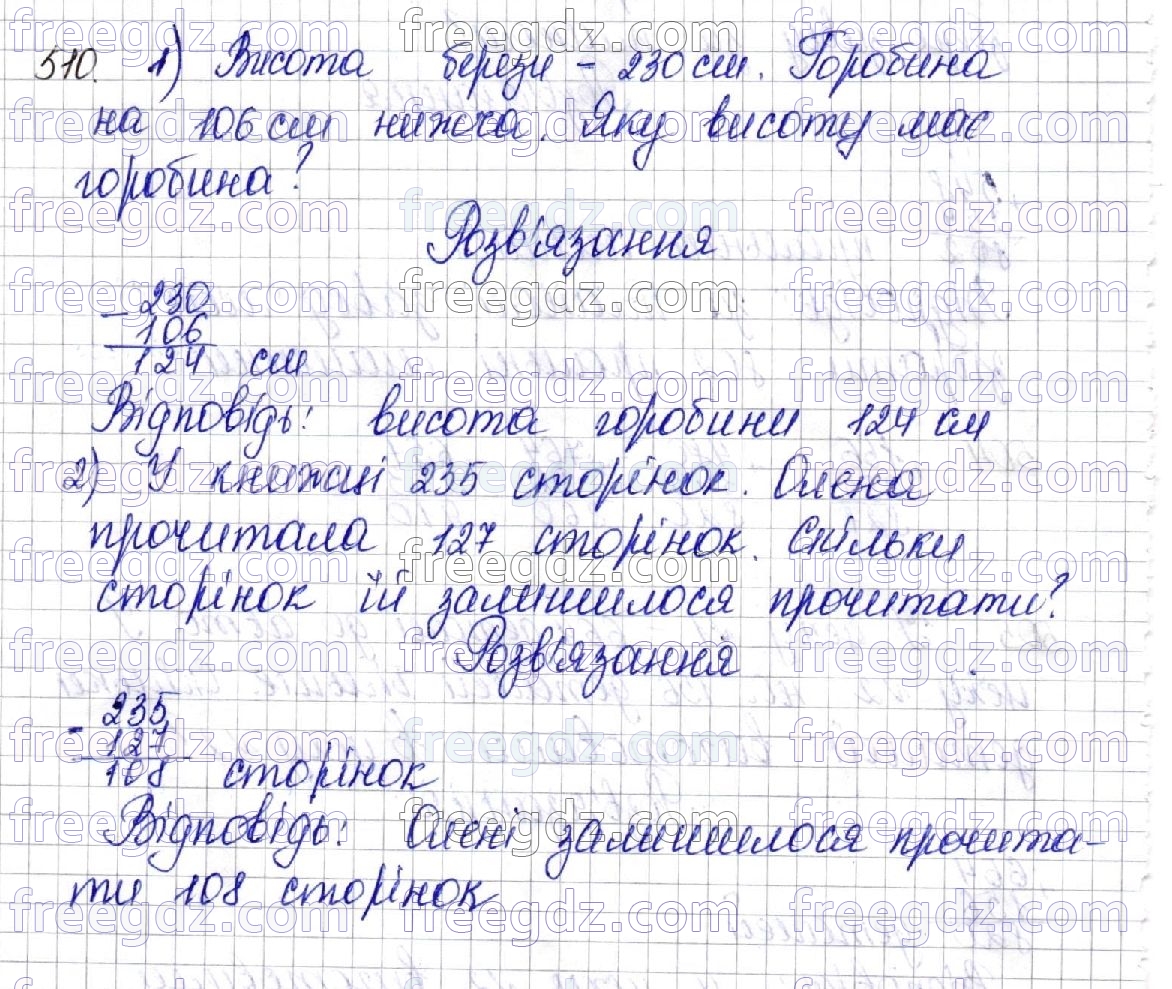 510. 1) Висота берези - 230 см. Горобина
на 106 см нижча. Яку висоту має
горобина?
Розв'язання
- 230
106
124 см
Відповідь: висота горобини 124 см
2) У книжці 235 сторінок. Олена
прочитала 127 сторінок. Скільки
сторінок їй залишилося прочитати?
Розв'язання
- 235
127
108 сторінок
Відповідь: Олені залишилося прочита-
ти 108 сторінок
freegdz.com